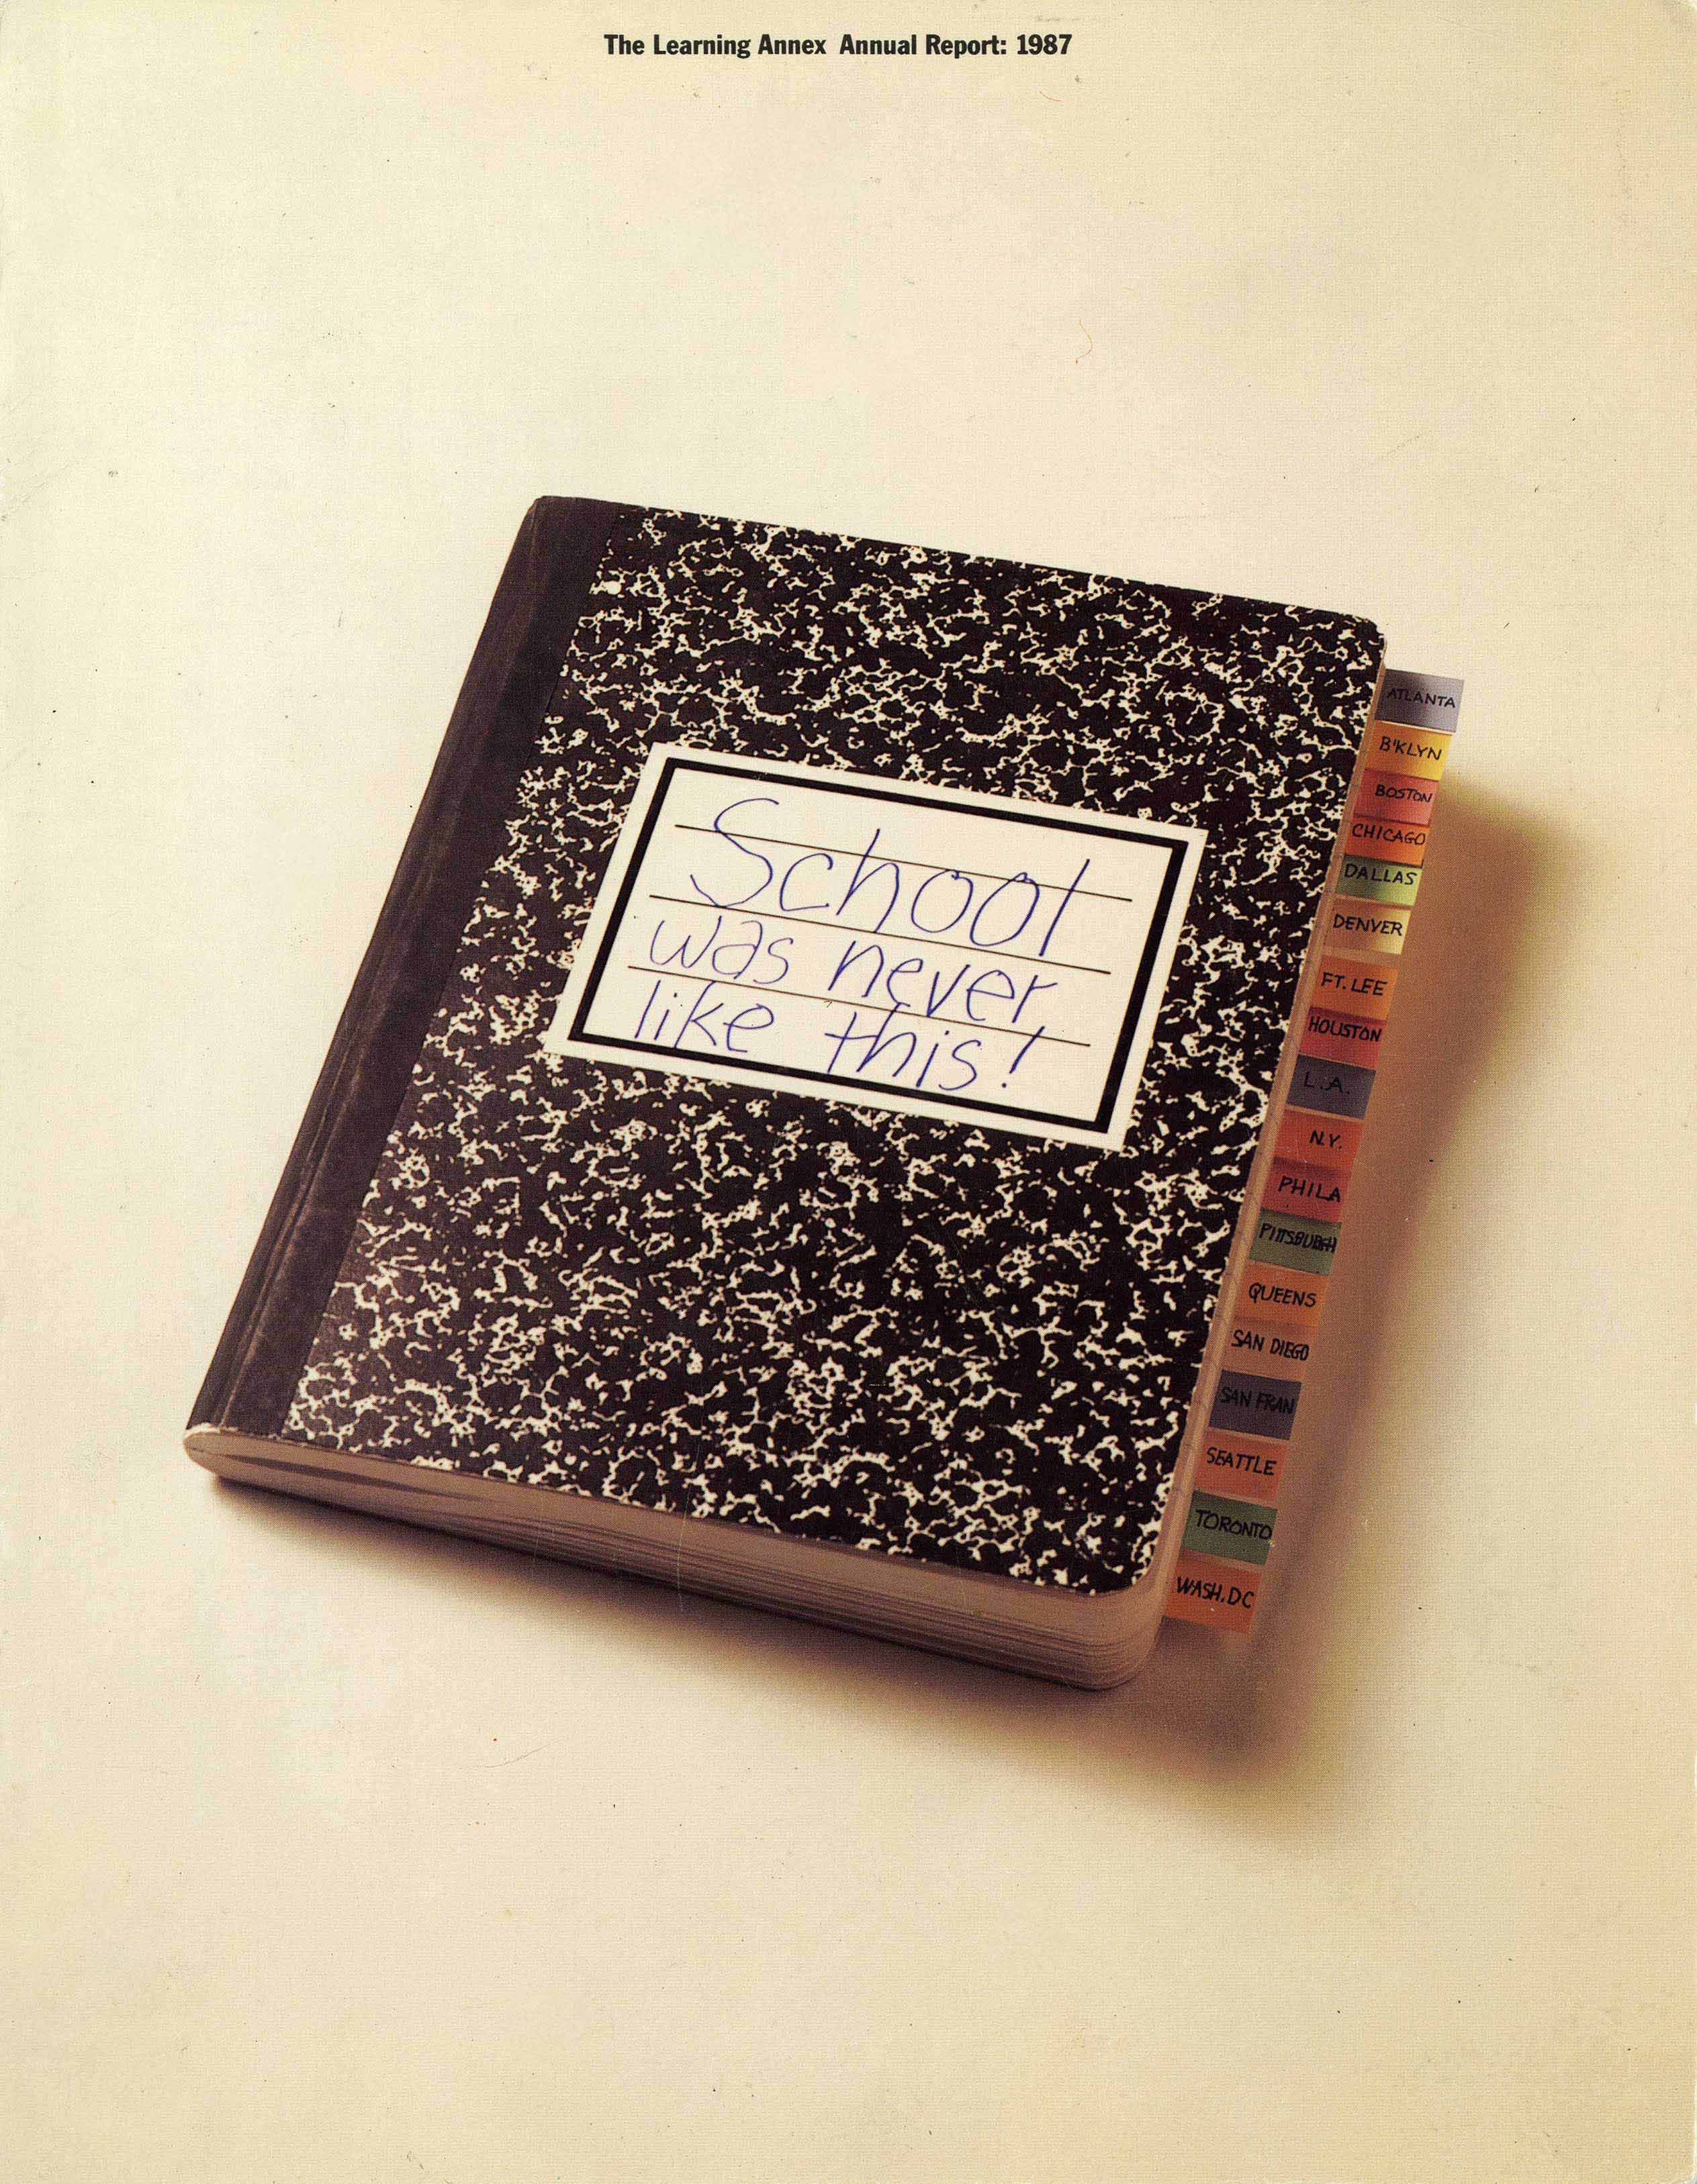 The Learning Annex Annual Report: 1987
School
was never
like this!
ATLANTA
B'KLYN
BOSTON
CHICAGO
DALLAS
DENVER
FT. LEE
HOUSTON
L.A.
N.Y.
PHILA
PITTSBURGH
QUEENS
SAN DIEGO
SAN FRAN
SEATTLE
TORONTO
WASH. DC